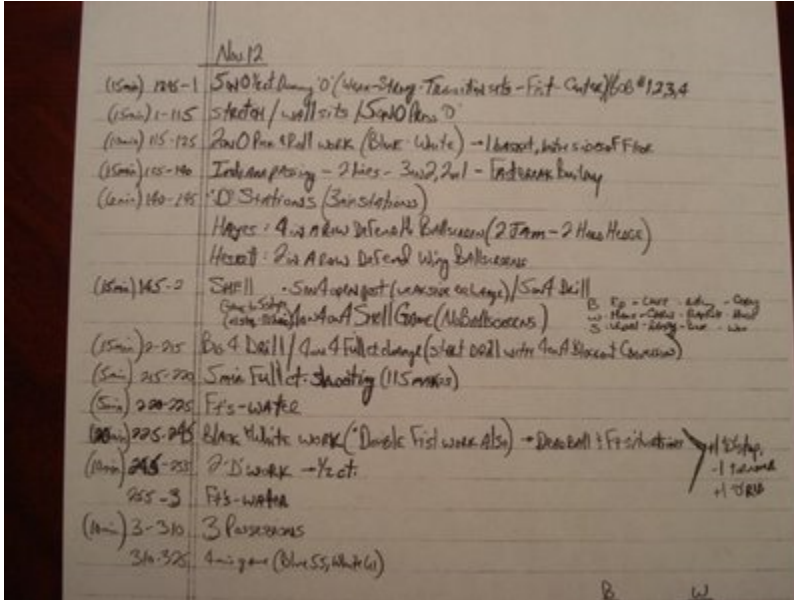 Nov. 12
(15min) 1245-1 5on0 Dummy 'O' (Weak-Strong-Transition sets-Fist-Center) BOB #1,2,3,4
(15min) 1-115 stretch / wall sits / 5on0 Press 'O'
(10min) 115-125 2on0 Pick & Roll work (Blue-White) → 1 basket, both sides of Floor
(15min) 125-140 Indiana passing - 2 lines - 3on2, 2on1 - Fastbreak
(6min) 140-145 'D' Stations (3min stations)
Hayes: 4 in a Row Defend Ballscreen (2 Jam - 2 Hard Hedge)
2 in a Row Defend Wing Ballscreens
(15min) 145-2 SHELL 5on4 open post (weakside exchange) / 5on4 Drill
4on4on4 Shell Game (No Ballscreens)
(15min) 2-215 Big 4 Drill / 4on4 Full ct change (start drill with 4on4 Blockout Conversion)
(5min) 215-220 5min Full ct. shooting (115 makes)
(5min) 220-225 Ft's-water
(20min) 225-245 Black & White work ("Double Fist work Also) → Deadball & Ft situations
+1 'D' stop,
-1 turnover
+1 O'RB
(10min) 245-255 2 'D' work → 1/2 ct.
255-3 Ft's-water
(10min) 3-310 3 Possessions
310-325 4min game (Blue 55, White 61)
B W